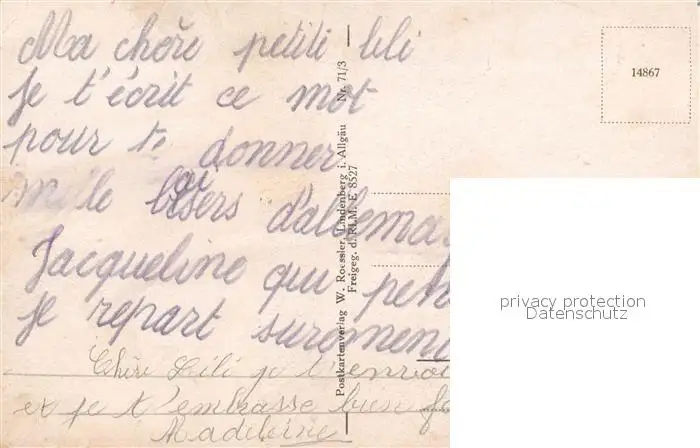 Ma chère petite lili
je t'écrit ce mot
pour te donner
mile baisers d'allema
Jacqueline qui pen
je repart surement
Chère Lili je t'envoi
et je t'embrasse bien fo
Madeleine
Postkartenverlag W. Roessler, Lindenberg i. Allgäu Nr. 71/3
Freigeg. d. RLM. E 8527
14867
privacy protection
Datenschutz